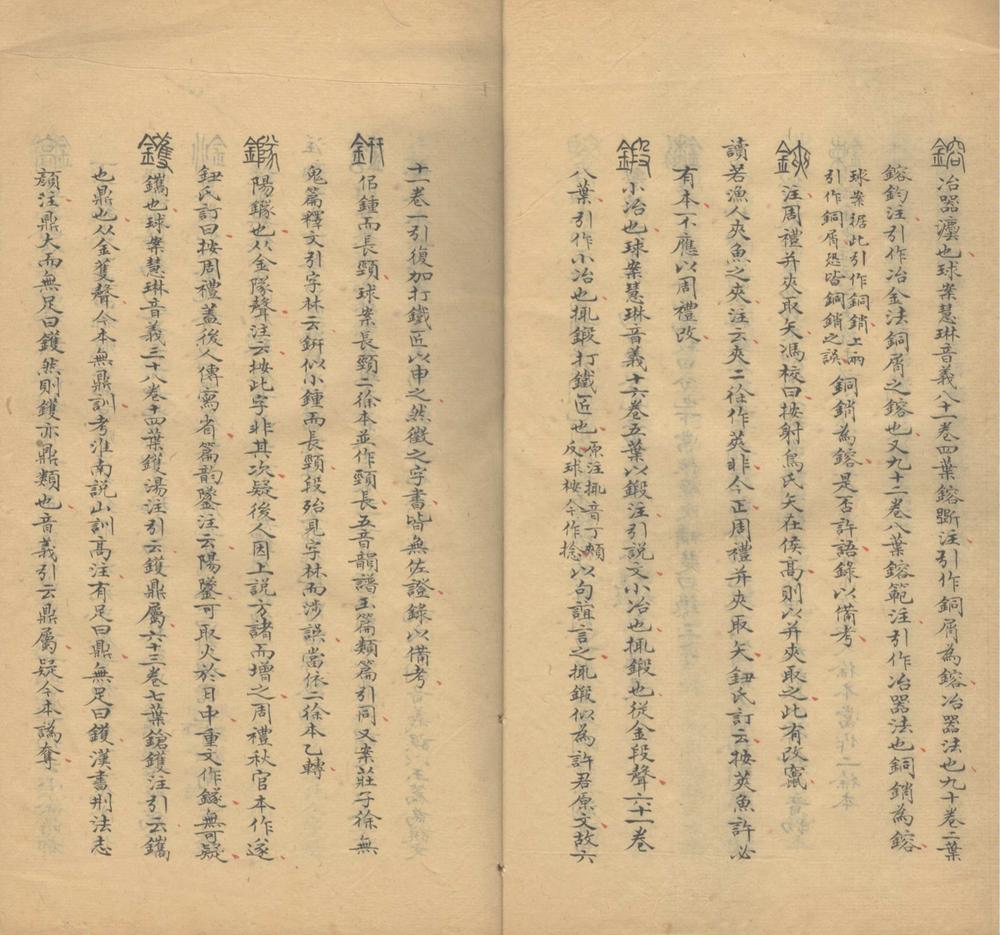 鎔冶器灋也球案慧琳音義八十一卷四葉鎔斲注引作銅屑為鎔冶器法也九十卷二葉
鎔鈞注引作冶金法銅屑之鎔也又九十二卷八葉鎔範注引作冶器法也銅銷為鎔
球案据此引作銅銷上兩
引作銅屑恐皆銅銷之誤
銅銷為鎔是否許語錄以備考
鋏注周禮并夾取矢馮校曰按射鳥氏矢在侯高則以并夾取之此有改竄
讀若漁人夾魚之夾注云夾二徐作莢非今正周禮并夾取矢鈕氏訂云按莢魚許必
有本不應以周禮改
鍛小冶也球案慧琳音義十六卷五葉以鍛注引説文小冶也輒鍛也從金段聲六十一卷
八葉引作小冶也輒鍛打鐵匠也
原注輒音丁頰
反球按今作捻
以句誼言之輒鍛似為許君原文故六
十一卷一引復加打鐵匠以申之然徵之字書皆無佐證錄以備考
鈃佀鍾而長頸球案長頸二徐本並作頸長五音韻譜玉篇類篇引同又案莊子徐無
鬼篇釋文引字林云鈃似小鍾而長頸段殆見字林而涉誤當依二徐本乙轉
鐆陽鐆也从金隊聲注云按此字非其次疑後人因上説方諸而增之周禮秋官本作遂
鈕氏訂曰按周禮蓋後人傳寫省篇韵鐆注云陽鐆可取火於日中重文作鐩無可疑
鑊鑴也球案慧琳音義三十八卷十四葉鑊湯注引云鑊鼎屬六十三卷七葉鎗鑊注引云鑴
也鼎也从金蒦聲今本無鼎訓考淮南説山訓高注有足曰鼎無足曰鑊漢書刑法志
顏注鼎大而無足曰鑊然則鑊亦鼎類也音義引云鼎屬疑今本譌奪